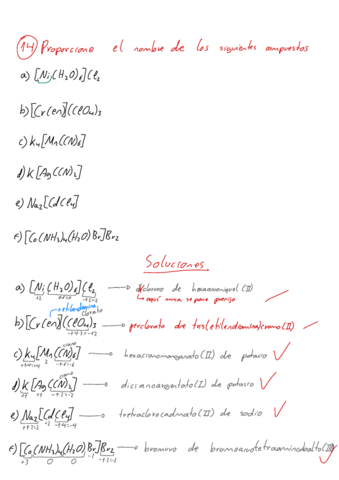 14 Proporcione el nombre de los siguientes compuestos
a) [Ni(H2O)6]Cl2
b) [Cr(en)](ClO4)3
c) K4[Mn(CN)6]
d) K[Ag(CN)2]
e) Na2[CdCl4]
f) [Co(NH3)4(H2O)Br]Br2
Soluciones
a) [Ni(H2O)6]Cl2 → dicloruro de hexaaquoniquel (II)
+2 → aquí nunca se pone prefijo
→ etilendiamina
clorato
b) [Cr(en)](ClO4)3 → perclorato de tris(etilendiamina)cromo(II)
c) K4[Mn(CN)6] → hexacianomanganato(II) de potasio
d) K[Ag(CN)2] → dicianoargentato(I) de potasio
e) Na2[CdCl4] → tetraclorocadmato(II) de sodio
f) [Co(NH3)4(H2O)Br]Br2 → bromuro de bromoacuotetraaminocobalto(III)
+3 0 0 -1